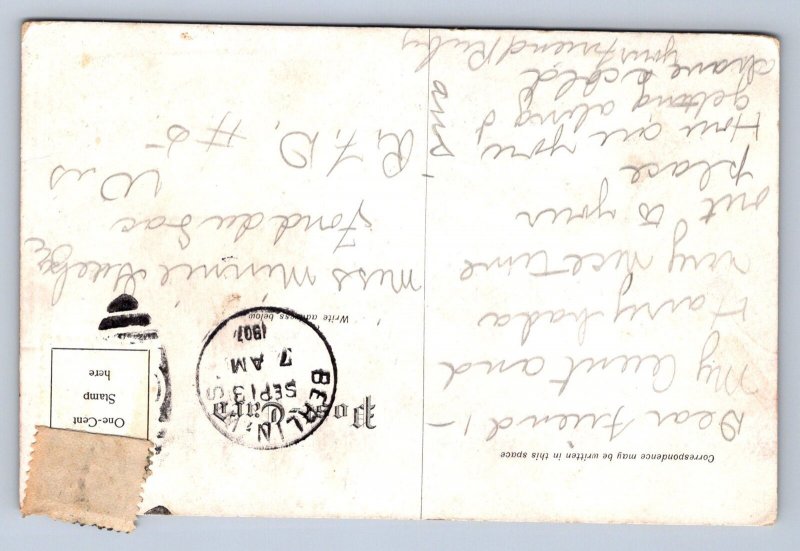 Correspondence may be written in this space
Dear friend! –
My Aunt and
Harry had a
very nice time
out to your
place
How are you
getting along I
have a cold
your friend Ruby
Post Card
BERLIN, WIS
SEP 13
7 AM
1907
One-Cent
Stamp
here
Write address below
Miss Minnie
Fond du Lac
Wis
R. F. D. #5